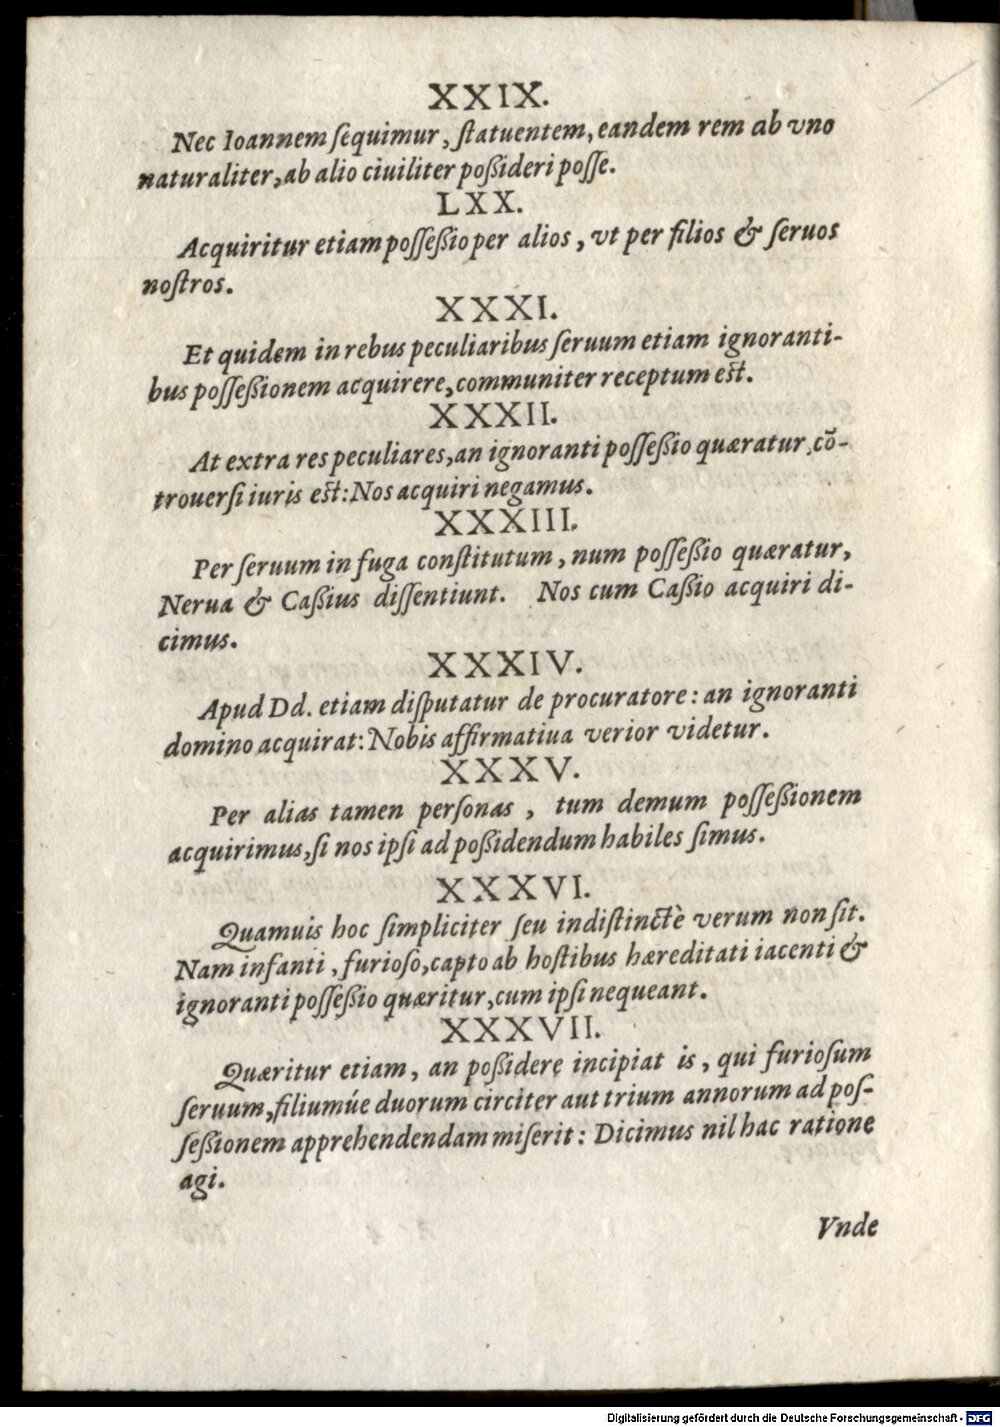 XXIX.
Nec Ioannem ſequimur, ſtatuentem, eandem rem ab vno
naturaliter, ab alio ciuiliter poßideri poſſe.
LXX.
Acquiritur etiam poſſeßio per alios, vt per filios & ſeruos
noſtros.
XXXI.
Et quidem in rebus peculiaribus ſeruum etiam ignoranti-
bus poſſeßionem acquirere, communiter receptum eſt.
XXXII.
At extra res peculiares, an ignoranti poſſeßio quæratur, cõ-
trouerſi iuris eſt: Nos acquiri negamus.
XXXIII.
Per ſeruum in fuga conſtitutum, num poſſeßio quæratur,
Nerua & Caßius diſſentiunt. Nos cum Caßio acquiri di-
cimus.
XXXIV.
Apud Dd. etiam diſputatur de procuratore: an ignoranti
domino acquirat: Nobis affirmatiua verior videtur.
XXXV.
Per alias tamen perſonas, tum demum poſſeßionem
acquirimus, ſi nos ipſi ad poßidendum habiles ſimus.
XXXVI.
Quamuis hoc ſimpliciter ſeu indiſtinctè verum non ſit.
Nam infanti, furioſo, capto ab hoſtibus hæreditati iacenti &
ignoranti poſſeßio quæritur, cum ipſi nequeant.
XXXVII.
Quæritur etiam, an poßidere incipiat is, qui furioſum
ſeruum, filiumúe duorum circiter aut trium annorum ad poſ-
ſeßionem apprehendendam miſerit: Dicimus nil hac ratione
agi.
Vnde
Digitalisierung gefördert durch die Deutsche Forschungsgemeinschaft - DFG